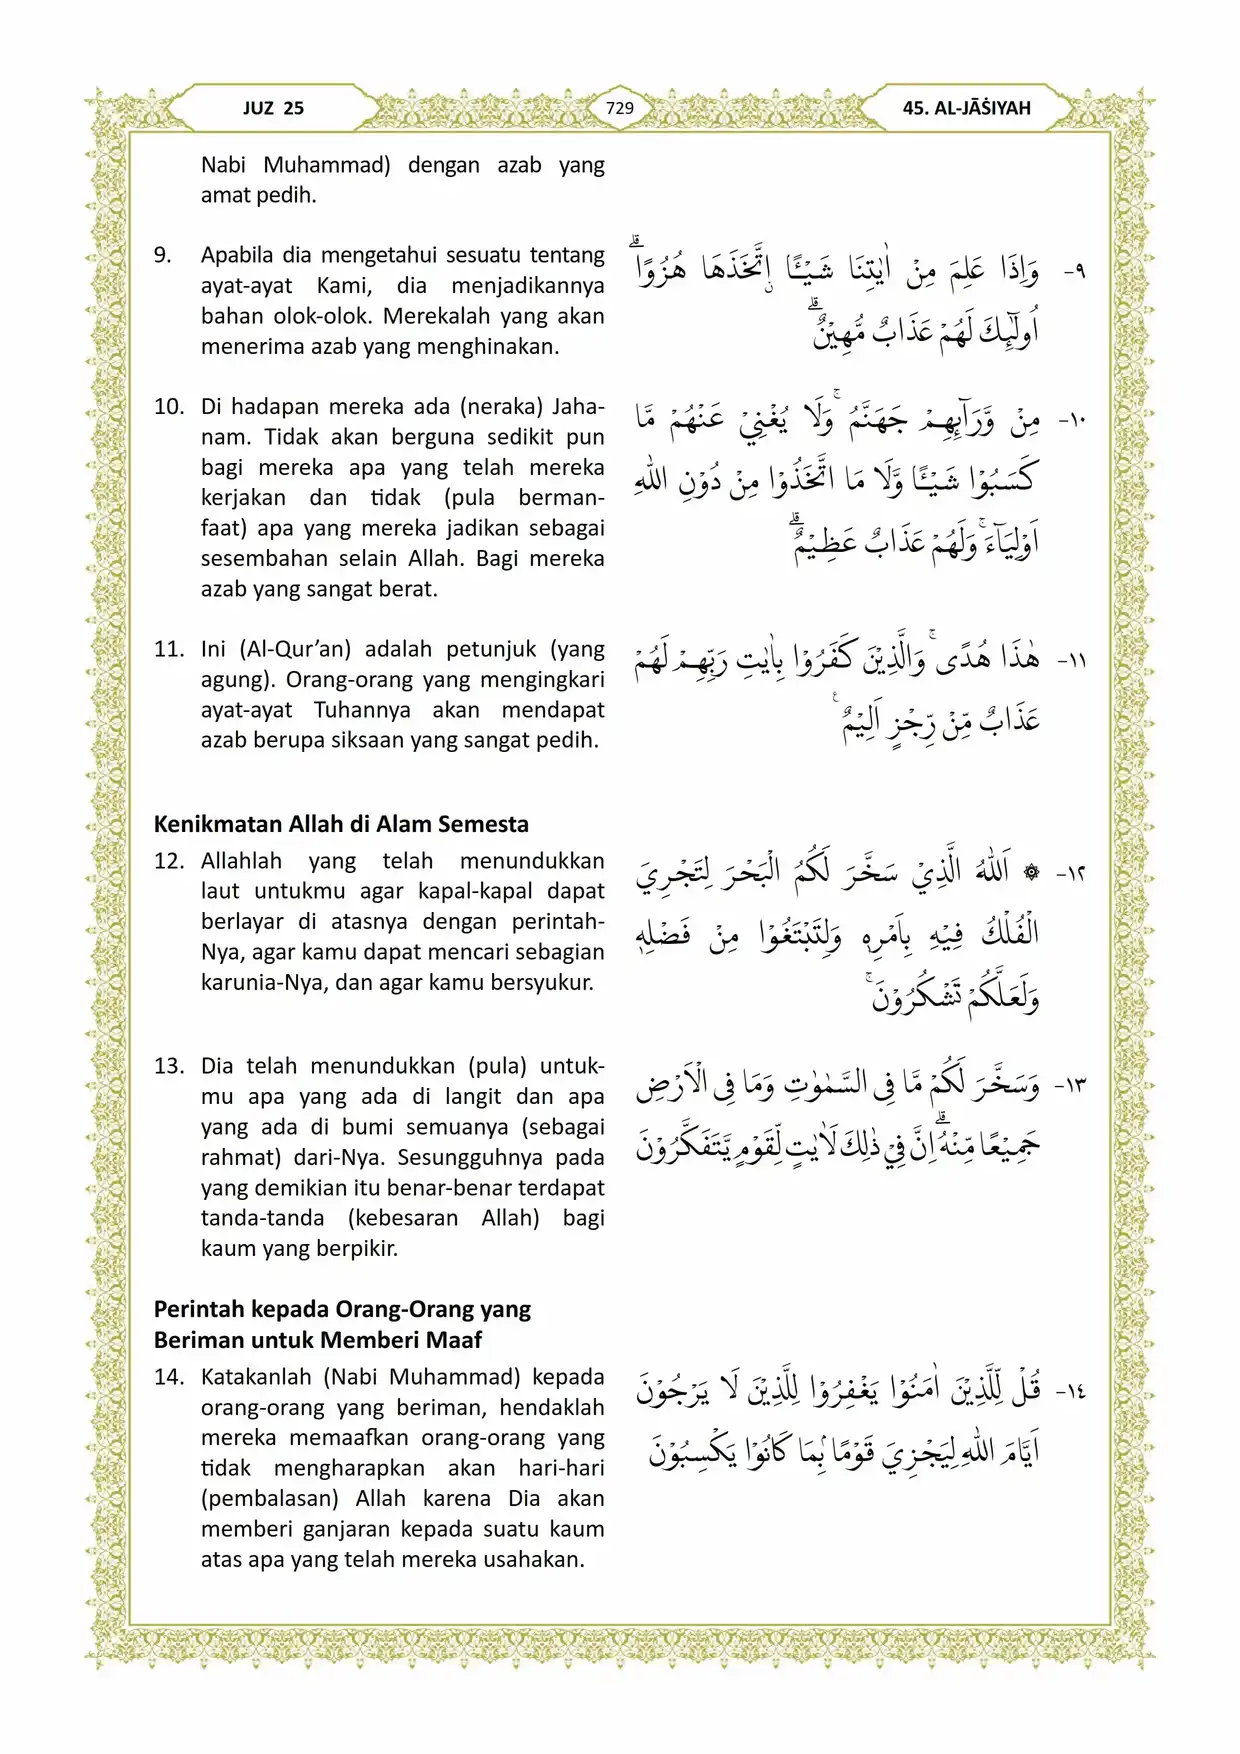 JUZ 25
729
45. AL-JĀṠIYAH
Nabi Muhammad) dengan azab yang
amat pedih.
9. Apabila dia mengetahui sesuatu tentang
ayat-ayat Kami, dia menjadikannya
bahan olok-olok. Merekalah yang akan
menerima azab yang menghinakan.
٩- وَاِذَا عَلِمَ مِنْ اٰيٰتِنَا شَيْـًٔا ۨاتَّخَذَهَا هُزُوًاۗ
اُولٰۤىِٕكَ لَهُمْ عَذَابٌ مُّهِيْنٌۗ
10. Di hadapan mereka ada (neraka) Jaha-
nam. Tidak akan berguna sedikit pun
bagi mereka apa yang telah mereka
kerjakan dan tidak (pula berman-
faat) apa yang mereka jadikan sebagai
sesembahan selain Allah. Bagi mereka
azab yang sangat berat.
١٠- مِنْ وَّرَاۤىِٕهِمْ جَهَنَّمُ ۚوَلَا يُغْنِيْ عَنْهُمْ مَّا
كَسَبُوْا شَيْـًٔا وَّلَا مَا اتَّخَذُوْا مِنْ دُوْنِ اللّٰهِ
اَوْلِيَاۤءَۚ وَلَهُمْ عَذَابٌ عَظِيْمٌۗ
11. Ini (Al-Qur’an) adalah petunjuk (yang
agung). Orang-orang yang mengingkari
ayat-ayat Tuhannya akan mendapat
azab berupa siksaan yang sangat pedih.
١١- هٰذَا هُدًىۚ وَالَّذِيْنَ كَفَرُوْا بِاٰيٰتِ رَبِّهِمْ لَهُمْ
عَذَابٌ مِّنْ رِّجْزٍ اَلِيْمٌ ࣖ
Kenikmatan Allah di Alam Semesta
12. Allahlah yang telah menundukkan
laut untukmu agar kapal-kapal dapat
berlayar di atasnya dengan perintah-
Nya, agar kamu dapat mencari sebagian
karunia-Nya, dan agar kamu bersyukur.
١٢- ۞ اَللّٰهُ الَّذِيْ سَخَّرَ لَكُمُ الْبَحْرَ لِتَجْرِيَ
الْفُلْكُ فِيْهِ بِاَمْرِهٖ وَلِتَبْتَغُوْا مِنْ فَضْلِهٖ
وَلَعَلَّكُمْ تَشْكُرُوْنَۚ
13. Dia telah menundukkan (pula) untuk-
mu apa yang ada di langit dan apa
yang ada di bumi semuanya (sebagai
rahmat) dari-Nya. Sesungguhnya pada
yang demikian itu benar-benar terdapat
tanda-tanda (kebesaran Allah) bagi
kaum yang berpikir.
١٣- وَسَخَّرَ لَكُمْ مَّا فِى السَّمٰوٰتِ وَمَا فِى الْاَرْضِ
جَمِيْعًا مِّنْهُۗ اِنَّ فِيْ ذٰلِكَ لَاٰيٰتٍ لِّقَوْمٍ يَّتَفَكَّرُوْنَ
Perintah kepada Orang-Orang yang
Beriman untuk Memberi Maaf
14. Katakanlah (Nabi Muhammad) kepada
orang-orang yang beriman, hendaklah
mereka memaafkan orang-orang yang
tidak mengharapkan akan hari-hari
(pembalasan) Allah karena Dia akan
memberi ganjaran kepada suatu kaum
atas apa yang telah mereka usahakan.
١٤- قُلْ لِّلَّذِيْنَ اٰمَنُوْا يَغْفِرُوْا لِلَّذِيْنَ لَا يَرْجُوْنَ
اَيَّامَ اللّٰهِ لِيَجْزِيَ قَوْمًا ۢبِمَا كَانُوْا يَكْسِبُوْنَ